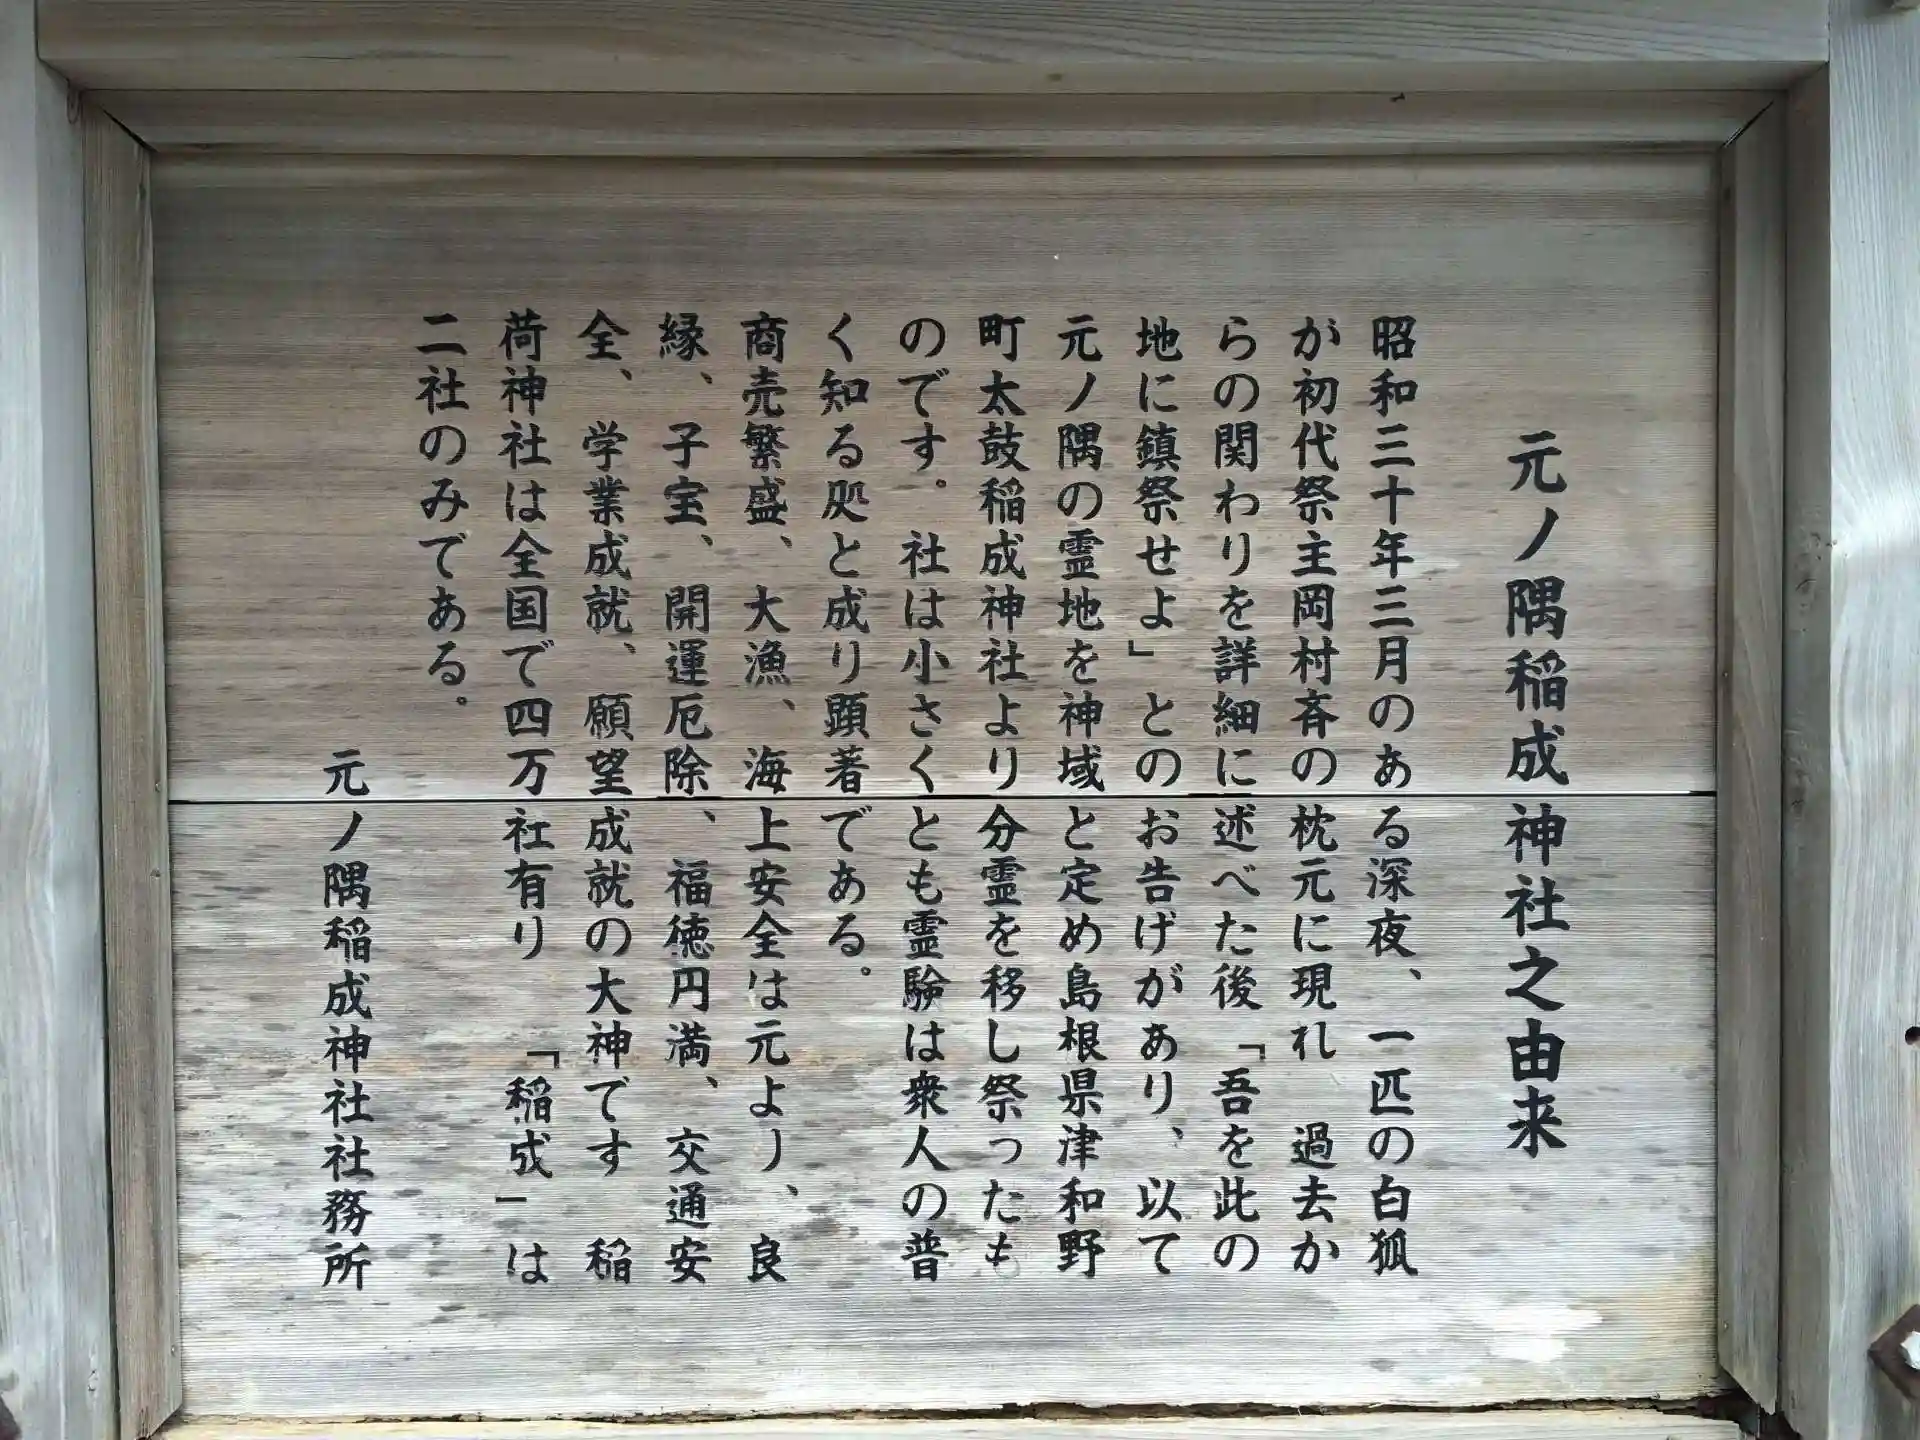 元ノ隅稲成神社之由来
昭和三十年三月のある深夜、一匹の白狐
が初代祭主岡村斉の枕元に現れ　過去か
らの関わりを詳細に述べた後「吾を此の
地に鎮祭せよ」とのお告げがあり、以て
元ノ隅の霊地を神域と定め島根県津和野
町太鼓稲成神社より分霊を移し祭ったも
のです。社は小さくとも霊験は衆人の普
く知る処と成り顕著である。
商売繁盛、大漁、海上安全は元より、良
縁、子宝、開運厄除、福徳円満、交通安
全、学業成就、願望成就の大神です　稲
荷神社は全国で四万社有り　「稲成」は
二社のみである。
元ノ隅稲成神社社務所